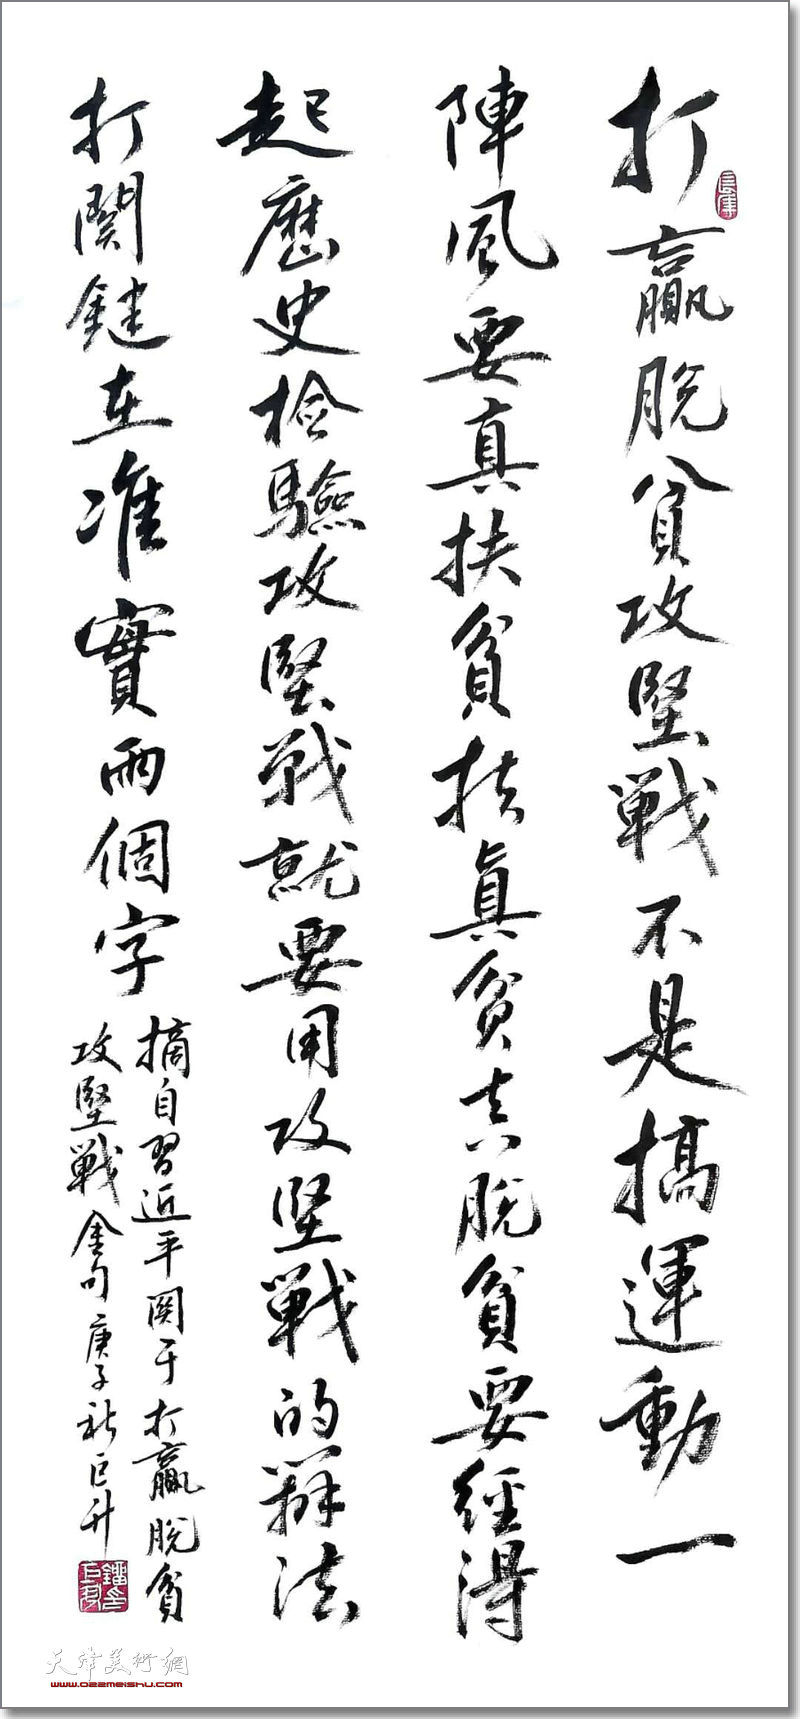 打贏脫貧攻堅戰不是搞運動一
陣風要真扶貧扶真貧真脫貧要經得
起歷史檢驗攻堅戰就要用攻堅戰的辦法
打關鍵在准實兩個字
摘自習近平関于打贏脫貧
攻堅戰金句庚子秋巨升
天津美術網
www.022meishu.com